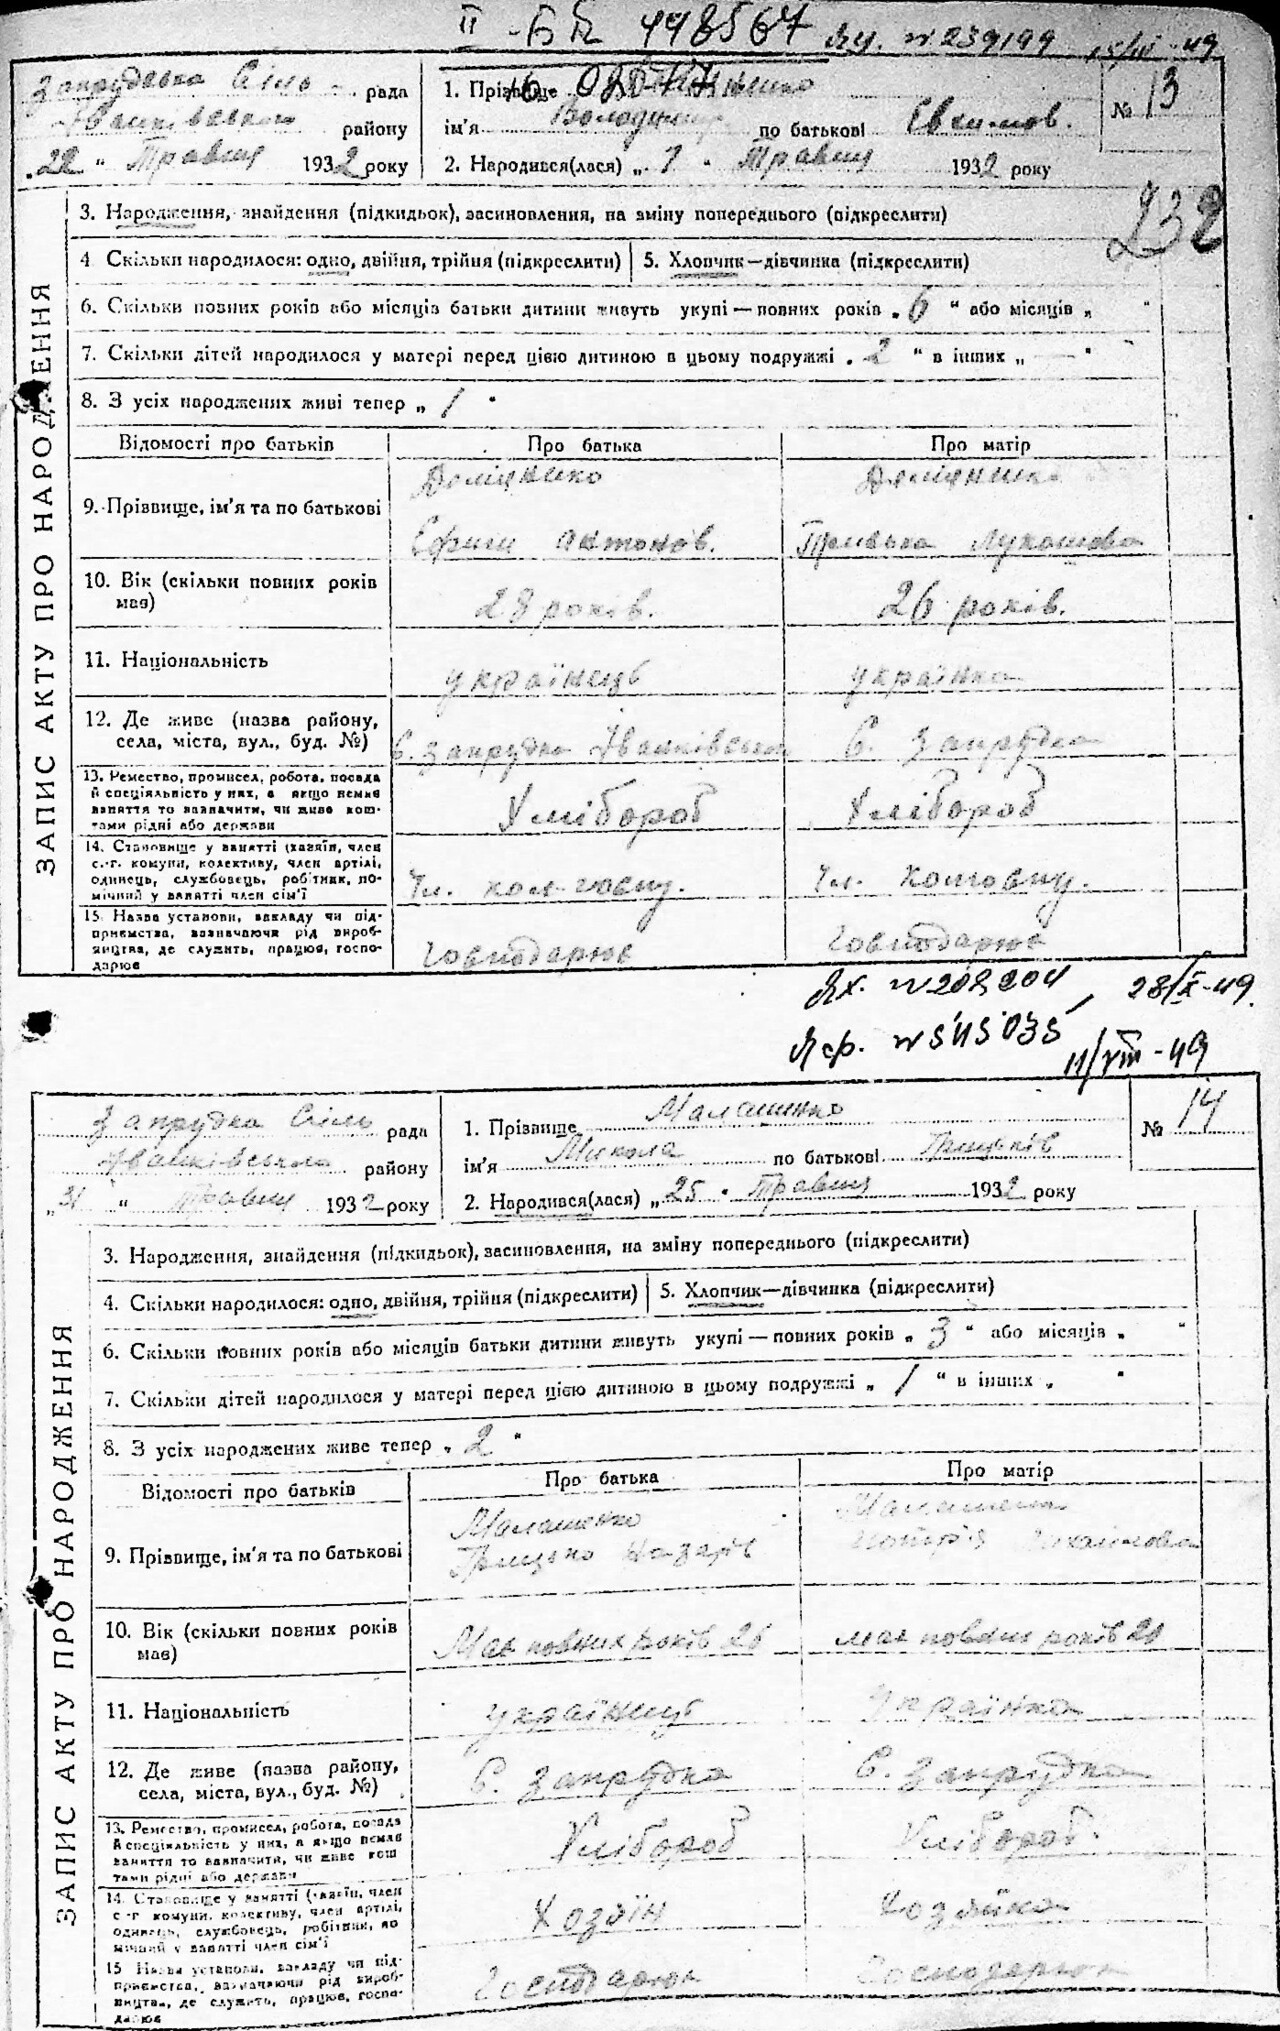 II - БК 498567 Яч. №239199 15/III-49
Запрудська Сіль рада
Іванківського району
„22“ Травня 1932 року
1. Прізвище
ім'я Володимир по батькові Євхимов.
2. Народився(лася) „7“ Травня 1932 року
№ 13
232
ЗАПИС АКТУ ПРО НАРОДЖЕННЯ
3. Народження, знайдення (підкидьок), засиновлення, на зміну попереднього (підкреслити)
4. Скільки народилося: одно, двійня, трійня (підкреслити) 5. Хлопчик—дівчинка (підкреслити)
6. Скільки повних років або місяців батьки дитини живуть укупі — повних років „6“ або місяців „ “
7. Скільки дітей народилося у матері перед цією дитиною в цьому подружжі „2“ в інших „—“
8. З усіх народжених живі тепер „1“
Відомості про батьків Про батька Про матір
9. Прізвище, ім'я та по батькові
Єфим Антонов. Лукашова
10. Вік (скільки повних років має) 28 років. 26 років.
11. Національність українець українка
12. Де живе (назва району,
села, міста, вул., буд. №) С. Запрудка Іванківськ С. Запрудка
13. Ремество, промисел, робота, посада
й спеціяльність у них, а якщо немає
заняття то зазначити, чи живе кош-
тами рідні або держави
Хлібороб Хлібороб
14. Становище у занятті (хазяїн, член
с.-г. комуни, колективу, член артілі,
одинець, службовець, робітник, по-
мічний у занятті член сім'ї
Чл. колгоспу. Чл. колгоспу.
15. Назва установи, закладу чи під-
приємства, зазначаючи рід вироб-
ництва, де служить, працює, госпо-
дарює
Господарює Господарює
№208204, 28/X-49.
№545035 11/VIII-49
Запрудка Сіль рада
Іванківського району
„31“ Травня 1932 року
1. Прізвище Малашенко
ім'я Микола по батькові Грицьків
2. Народився(лася) „25“ Травня 1932 року
№ 14
ЗАПИС АКТУ ПРО НАРОДЖЕННЯ
3. Народження, знайдення (підкидьок), засиновлення, на зміну попереднього (підкреслити)
4. Скільки народилося: одно, двійня, трійня (підкреслити) 5. Хлопчик—дівчинка (підкреслити)
6. Скільки повних років або місяців батьки дитини живуть укупі — повних років „3“ або місяців „ “
7. Скільки дітей народилося у матері перед цією дитиною в цьому подружжі „1“ в інших „ “
8. З усіх народжених живе тепер „2“
Відомості про батьків Про батька Про матір
Малашенко
9. Прізвище, ім'я та по батькові Грицько Назарів
10. Вік (скільки повних років має) Має повних років 26 має повних років 20
11. Національність українець Українка
12. Де живе (назва району,
села, міста, вул., буд. №) С. Запрудка С. Запрудка
13. Ремество, промисел, робота, посада
й спеціяльність у них, а якщо немає
заняття то зазначити, чи живе кош
тами рідні або держави
Хлібороб Хлібороб.
14. Становище у занятті (хазяїн, член
с-г комуни, колективу, член артілі,
одинець, службовець, робітник, по
мічний у занятті член сім'ї
Хозяїн Хозяйка
15. Назва установи, закладу чи під-
приємства, зазначаючи рід вироб-
ництва, де служить, працює, госпо-
дарює
Господарює Господарює